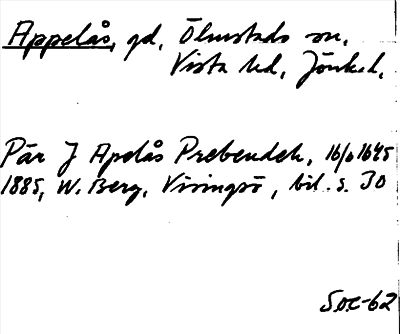 Appelås, gd, Ölmstads sn,
Vista hd, Jönk. l.
Pär J Apelås Prebendeh, 16/6 1645
1885, W. Berg, Visingsö, bil. s. 30
SOC-62